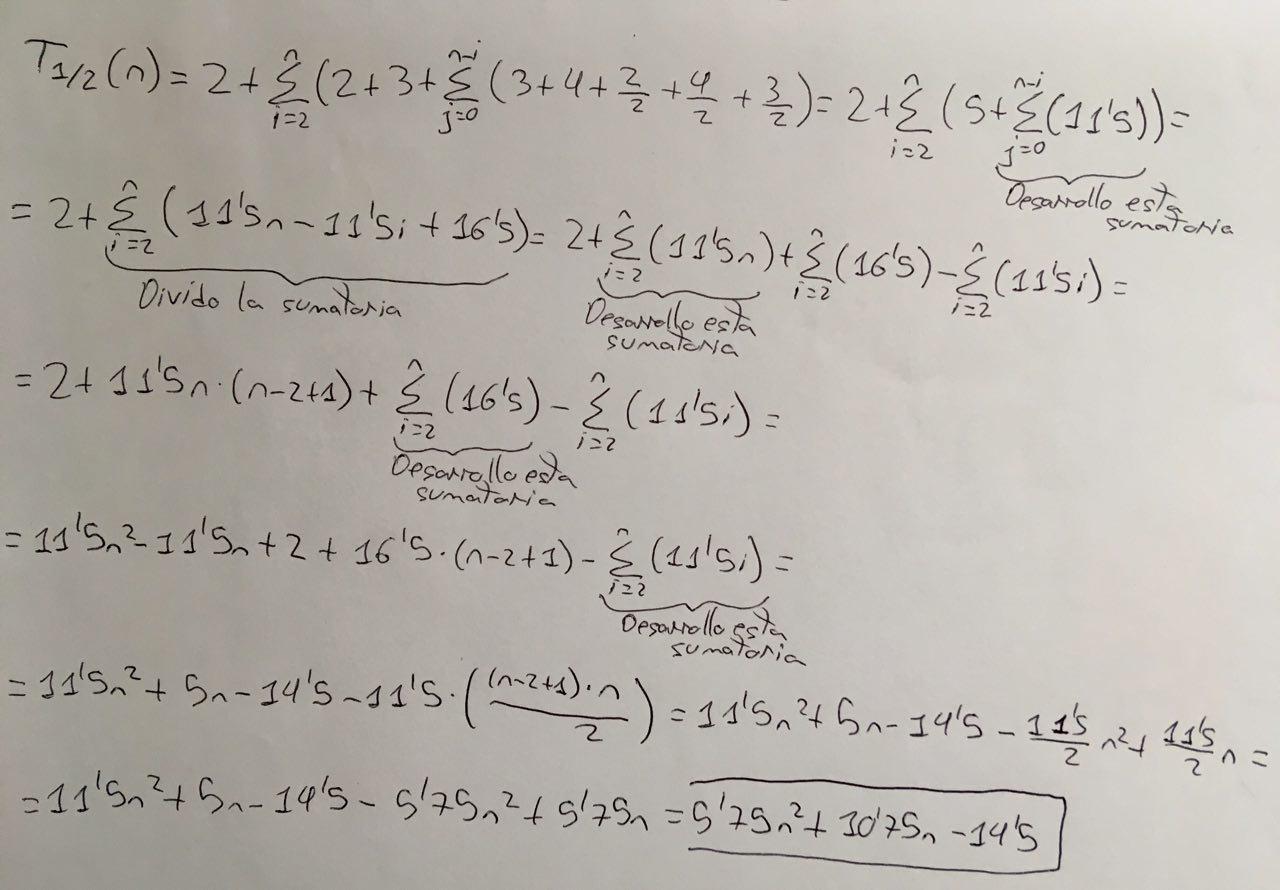 T1/2(n) = 2 + Σ_{i=2}^{n} (2 + 3 + Σ_{j=0}^{n-i} (3 + 4 + 2/2 + 4/2 + 3/2) = 2 + Σ_{i=2}^{n} (5 + Σ_{j=0}^{n-i} (11'5)) =
Desarrollo esta
sumatoria
= 2 + Σ_{i=2}^{n} (11'5n - 11'5i + 16'5) = 2 + Σ_{i=2}^{n} (11'5n) + Σ_{i=2}^{n} (16'5) - Σ_{i=2}^{n} (11'5i) =
Divido la sumatoria
Desarrollo esta
sumatoria
= 2 + 11'5n · (n-2+1) + Σ_{i=2}^{n} (16'5) - Σ_{i=2}^{n} (11'5i) =
Desarrollo esta
sumatoria
= 11'5n² - 11'5n + 2 + 16'5 · (n-2+1) - Σ_{i=2}^{n} (11'5i) =
Desarrollo esta
sumatoria
= 11'5n² + 5n - 14'5 - 11'5 · ((n-2+1)·n / 2) = 11'5n² + 5n - 14'5 - 11'5/2 n² + 11'5/2 n =
= 11'5n² + 5n - 14'5 - 5'75n² + 5'75n = 5'75n² + 10'75n - 14'5